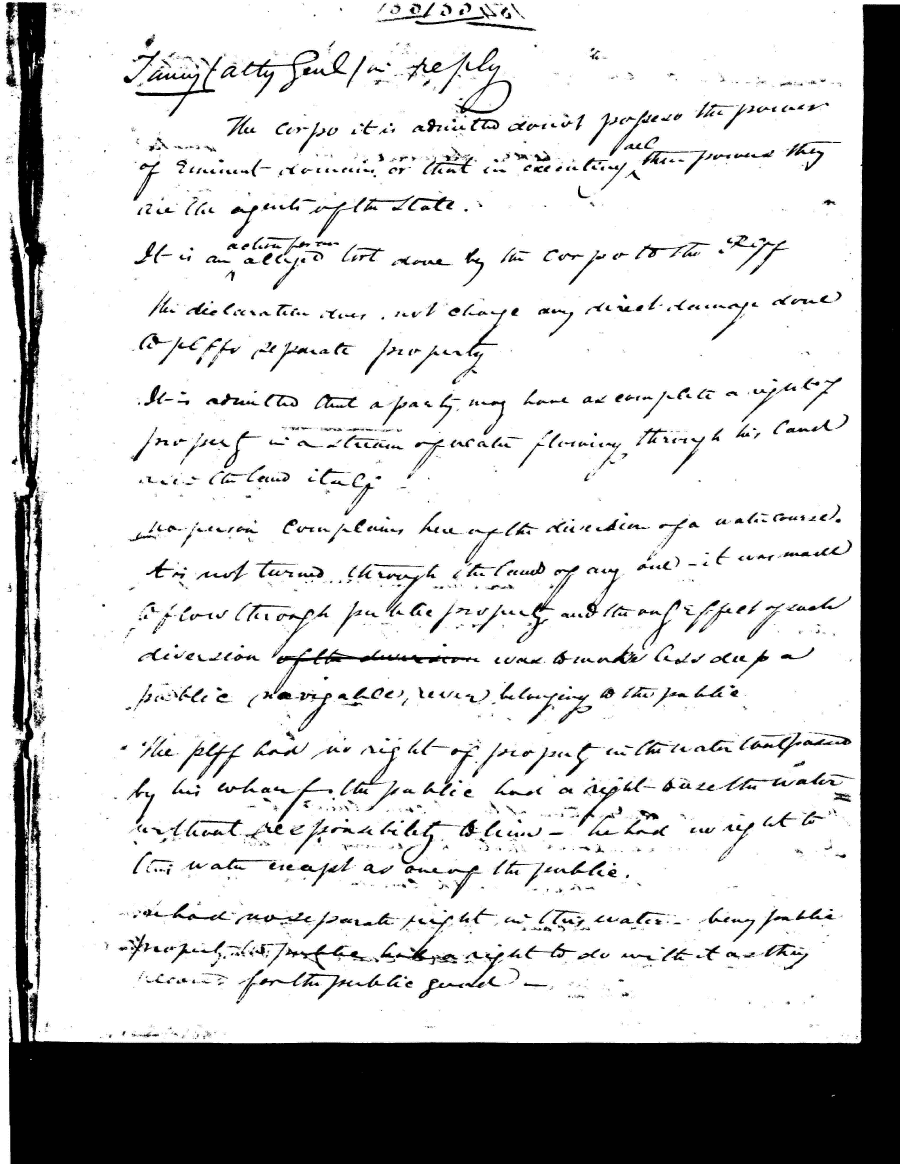 Taney (atty Genl) in reply
The corpo it is admitted do not possess the power
of Eminent domain, or that in executing all their powers they
are the agents of the State.
It is an action for an alleged tort done by the corpo to the Plff
The declaration does not charge any direct damage done
to plffs separate property
It is admitted that a party may have as complete a right of
property in a stream of water flowing through his land
as in the land itself
No person complains here of the diversion of a watercourse.
It is not turned through the land of any one - it was made
to flow through public property and the only effect of such
diversion of the diversion was to make less deep a
public navigable river belonging to the public
The plff had no right of property in the water that passed
by his wharf. the public had a right to use the water
without responsibility to him - he had no right to
this water except as one of the public.
He had no separate right in this water - being public
property the public had a right to do with it as they
pleased for the public good -